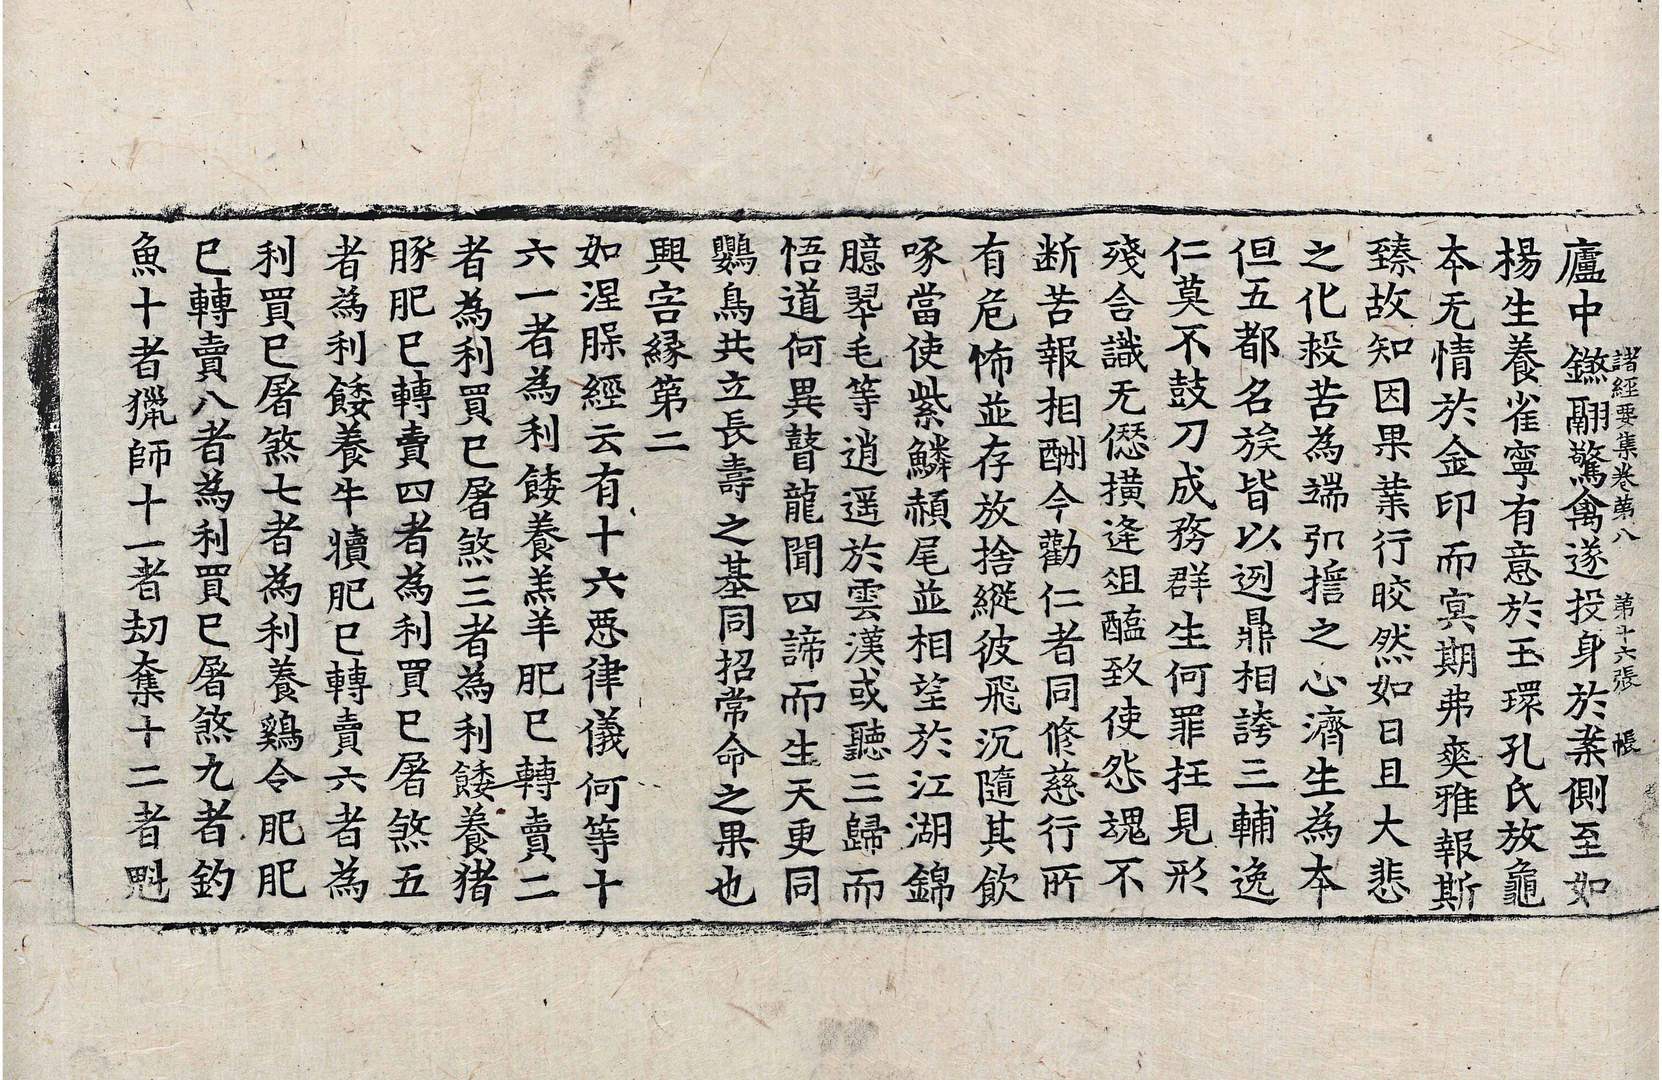 諸經要集卷苐八 苐十六張 帳
廬中鷰翮驚禽遂投身於案側至如
楊生養雀寧有意於玉環孔氏放龜
本无情於金印而㝠期弗爽雅報斯
臻故知因果業行皎然如日且大悲
之化救苦為端弘誓之心濟生為本
但五都名族皆以迾鼎相誇三輔逸
仁莫不鼓刀成務群生何罪抂見形
殘含識无愆橫逄俎醢致使怨魂不
断苦報相酬今勸仁者同修慈行所
有危怖並存放捨縱彼飛沉隨其飲
啄當使紫鱗赬尾並相望於江湖錦
臆翠毛等逍遥於雲漢或聽三歸而
悟道何異瞽龍聞四諦而生天更同
鸚鳥共立長壽之基同招常命之果也
興害縁第二
如涅槃經云有十六惡律儀何等十
六一者為利餧養羔羊肥已轉賣二
者為利買已屠煞三者為利餧養猪
豚肥已轉賣四者為利買已屠煞五
者為利餧養牛犢肥已轉賣六者為
利買已屠煞七者為利養鷄令肥肥
已轉賣八者為利買已屠煞九者釣
魚十者獵師十一者刧奪十二者魁